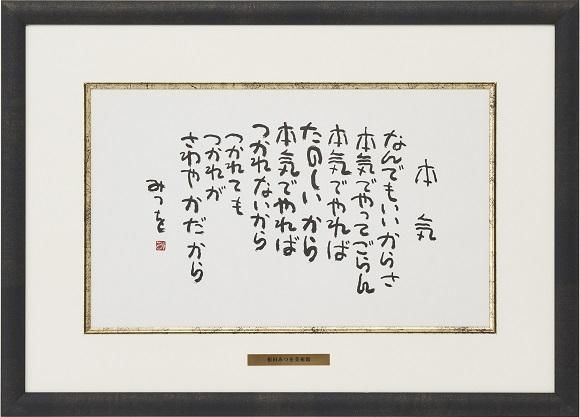 本気
なんでもいいからさ
本気でやってごらん
本気でやれば
たのしいから
本気でやれば
つかれないから
つかれても
つかれが
さわやかだから
みつを
相田みつを美術館